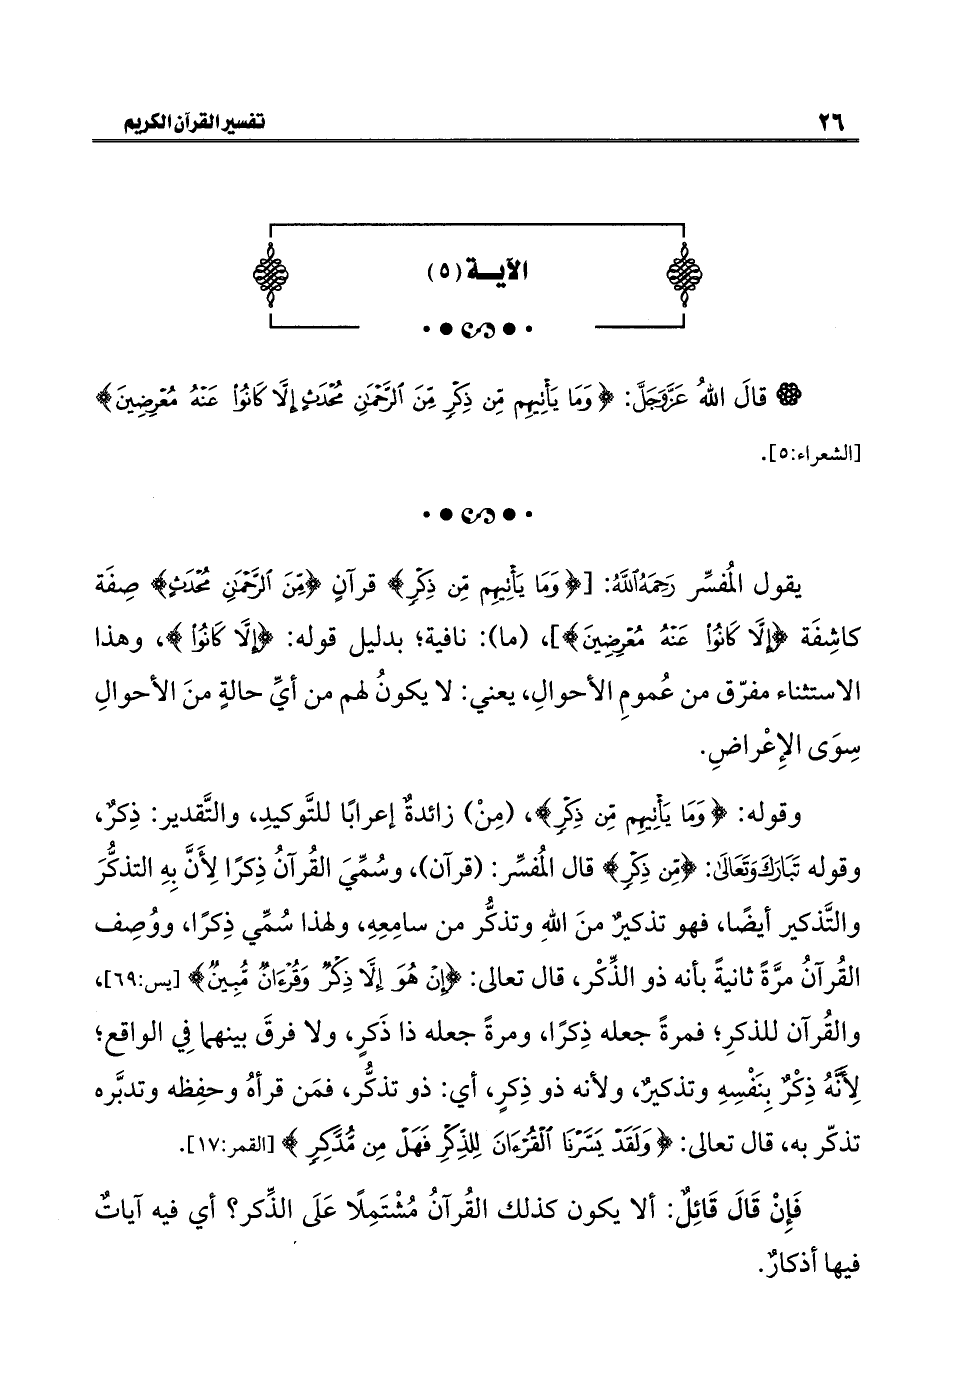 ٢٦
تفسير القرآن الكريم
الآيـــة (٥)
قالَ اللهُ عَزَّوَجَلَّ: ﴿وَمَا يَأْتِيهِم مِّن ذِكْرٍ مِّنَ ٱلرَّحْمَٰنِ مُحْدَثٍ إِلَّا كَانُوا۟ عَنْهُ مُعْرِضِينَ﴾
[الشعراء:٥].
يقول المُفسِّر رَحِمَهُ ٱللَّهُ: [﴿وَمَا يَأْتِيهِم مِّن ذِكْرٍ﴾ قرآنٍ ﴿مِّنَ ٱلرَّحْمَٰنِ مُحْدَثٍ﴾ صِفَة
كاشِفَة ﴿إِلَّا كَانُوا۟ عَنْهُ مُعْرِضِينَ﴾]، (ما): نافية؛ بدليل قوله: ﴿إِلَّا كَانُوا۟﴾، وهذا
الاستثناء مفرّق من عُمومِ الأحوالِ، يعني: لا يكونُ لهم من أيِّ حالةٍ منَ الأحوالِ
سِوَى الإِعْراضِ.
وقوله: ﴿وَمَا يَأْتِيهِم مِّن ذِكْرٍ﴾، (مِنْ) زائدةٌ إعرابًا للتَّوكيدِ، والتَّقدير: ذِكرٌ،
وقوله تَبَارَكَ وَتَعَالَى: ﴿مِّن ذِكْرٍ﴾ قال المُفسِّر: (قرآن)، وسُمِّيَ القُرآنُ ذِكرًا لِأَنَّ بِهِ التذكُّرَ
والتَّذكير أيضًا، فهو تذكيرٌ منَ اللهِ وتذكُّر من سامعِهِ، ولهذا سُمِّي ذِكرًا، ووُصِف
القُرآنُ مرَّةً ثانيةً بأنه ذو الذِّكْر، قال تعالى: ﴿إِنْ هُوَ إِلَّا ذِكْرٌ وَقُرْءَانٌ مُّبِينٌ﴾ [يس:٦٩]،
والقُرآن للذكرِ؛ فمرةً جعله ذِكرًا، ومرةً جعله ذا ذَكرٍ، ولا فرقَ بينهما فِي الواقع؛
لِأَنَّهُ ذِكْرٌ بِنَفْسِهِ وتذكيرٌ، ولأنه ذو ذِكرٍ، أي: ذو تذكُّر، فمَن قرأهُ وحفِظه وتدبَّره
تذكّر به، قال تعالى: ﴿وَلَقَدْ يَسَّرْنَا ٱلْقُرْءَانَ لِلذِّكْرِ فَهَلْ مِن مُّدَّكِرٍ﴾ [القمر:١٧].
فَإِنْ قَالَ قَائِلٌ: ألا يكون كذلك القُرآنُ مُشْتَمِلًا عَلَى الذِّكر؟ أي فيه آياتٌ
فيها أذكارٌ.